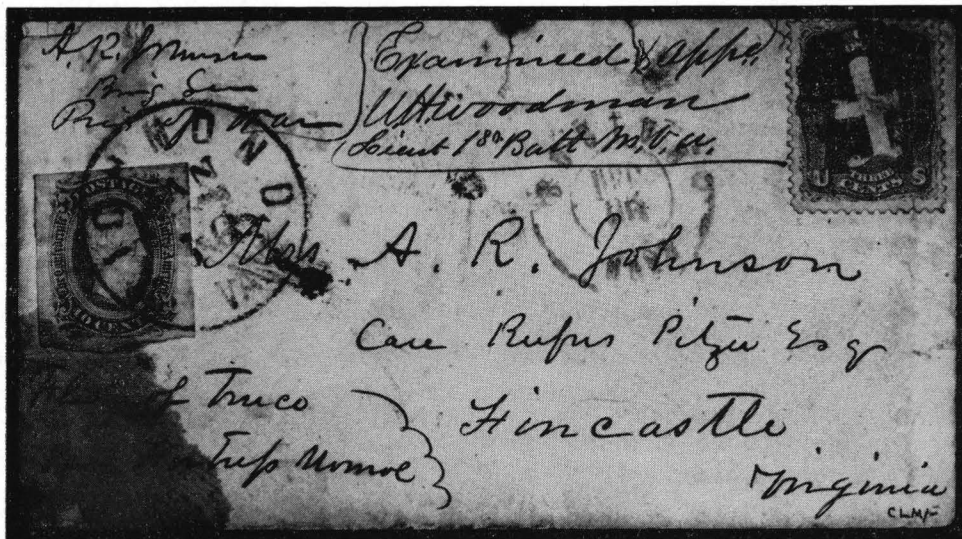 A. R. Johnson
Brig Gen
Pris of War
Examined & appd.
WHwoodman
Lieut 1st Batt M.V.
RICHMOND
POSTAGE
TEN CENTS
U S
THREE
CENTS
Mrs. A. R. Johnson
Care Rufus Pitzer Esq
Fincastle
Virginia
Flag of Truce
Fortress Monroe
CLMF